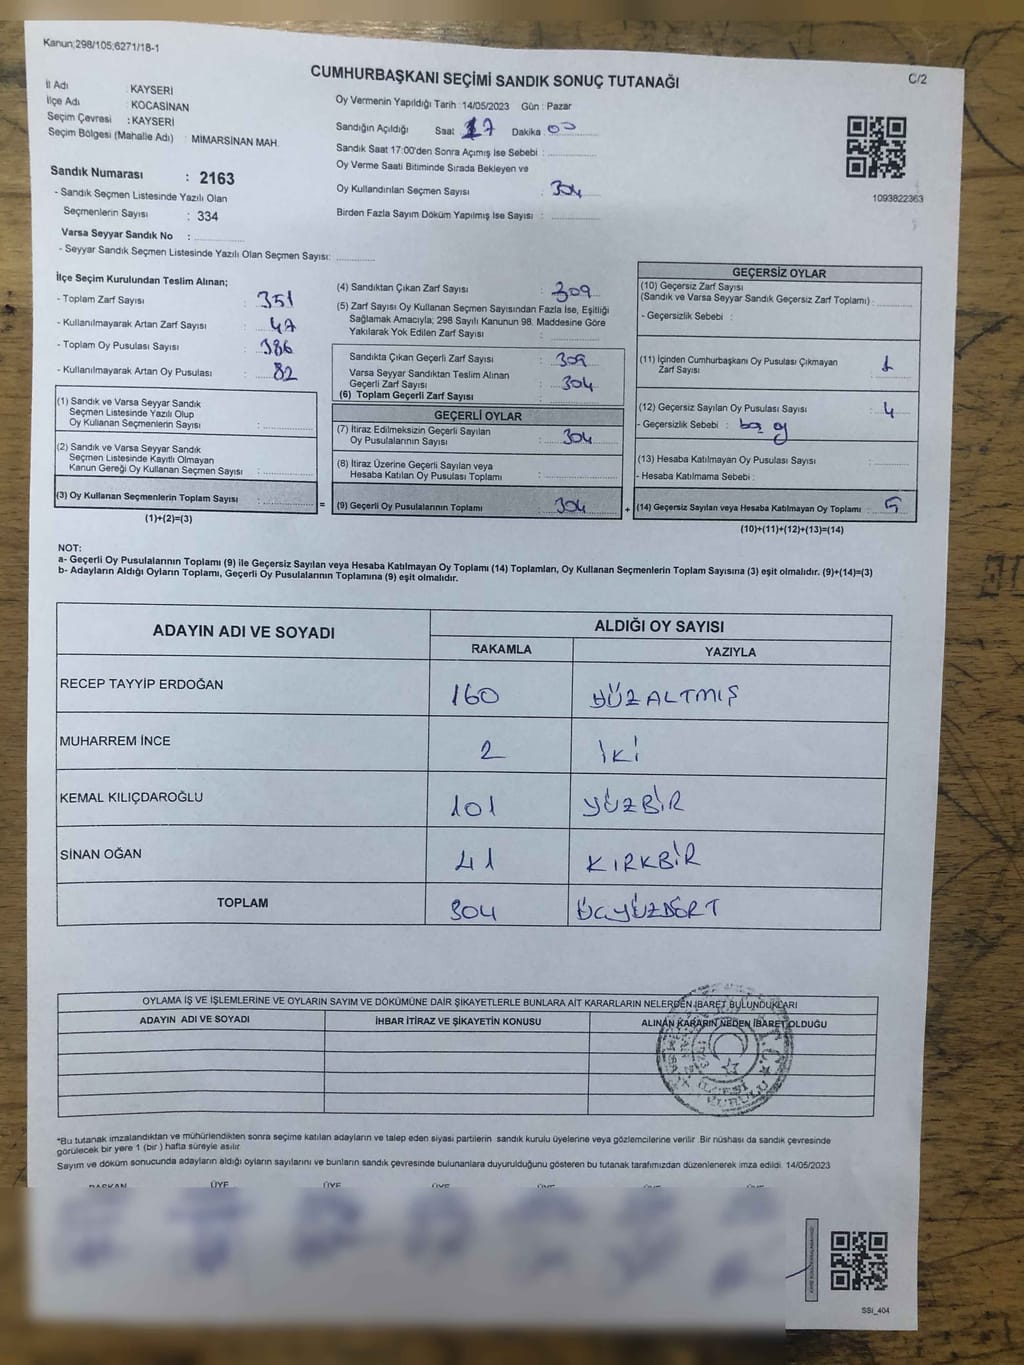 Kanun;298/105;6271/18-1
C/2
CUMHURBAŞKANI SEÇİMİ SANDIK SONUÇ TUTANAĞI
İl Adı : KAYSERİ
İlçe Adı : KOCASİNAN
Seçim Çevresi : KAYSERİ
Seçim Bölgesi (Mahalle Adı) : MİMARSİNAN MAH.
Sandık Numarası : 2163
- Sandık Seçmen Listesinde Yazılı Olan
Seçmenlerin Sayısı : 334
Varsa Seyyar Sandık No :
- Seyyar Sandık Seçmen Listesinde Yazılı Olan Seçmen Sayısı:
Oy Vermenin Yapıldığı Tarih : 14/05/2023 Gün : Pazar
Sandığın Açıldığı Saat 17 Dakika 00
Sandık Saat 17:00'den Sonra Açımış İse Sebebi :
Oy Verme Saati Bitiminde Sırada Bekleyen ve
Oy Kullandırılan Seçmen Sayısı : 304
Birden Fazla Sayım Döküm Yapılmış İse Sayısı :
1093822363
İlçe Seçim Kurulundan Teslim Alınan;
- Toplam Zarf Sayısı : 351
- Kullanılmayarak Artan Zarf Sayısı : 47
- Toplam Oy Pusulası Sayısı : 386
- Kullanılmayarak Artan Oy Pusulası : 82
(1) Sandık ve Varsa Seyyar Sandık
Seçmen Listesinde Yazılı Olup
Oy Kullanan Seçmenlerin Sayısı :
(2) Sandık ve Varsa Seyyar Sandık
Seçmen Listesinde Kayıtlı Olmayan
Kanun Gereği Oy Kullanan Seçmen Sayısı :
(3) Oy Kullanan Seçmenlerin Toplam Sayısı :
(1)+(2)=(3)
=
(4) Sandıktan Çıkan Zarf Sayısı : 309
(5) Zarf Sayısı Oy Kullanan Seçmen Sayısından Fazla İse, Eşitliği
Sağlamak Amacıyla; 298 Sayılı Kanunun 98. Maddesine Göre
Yakılarak Yok Edilen Zarf Sayısı :
Sandıkta Çıkan Geçerli Zarf Sayısı : 309
Varsa Seyyar Sandıktan Teslim Alınan
Geçerli Zarf Sayısı : 304
(6) Toplam Geçerli Zarf Sayısı :
GEÇERLİ OYLAR
(7) İtiraz Edilmeksizin Geçerli Sayılan
Oy Pusulalarının Sayısı : 304
(8) İtiraz Üzerine Geçerli Sayılan veya
Hesaba Katılan Oy Pusulası Toplamı :
(9) Geçerli Oy Pusulalarının Toplamı : 304
+
GEÇERSİZ OYLAR
(10) Geçersiz Zarf Sayısı
(Sandık ve Varsa Seyyar Sandık Geçersiz Zarf Toplamı) :
- Geçersizlik Sebebi :
(11) İçinden Cumhurbaşkanı Oy Pusulası Çıkmayan
Zarf Sayısı : 1
(12) Geçersiz Sayılan Oy Pusulası Sayısı : 4
- Geçersizlik Sebebi :
(13) Hesaba Katılmayan Oy Pusulası Sayısı :
- Hesaba Katılmama Sebebi :
(14) Geçersiz Sayılan veya Hesaba Katılmayan Oy Toplamı : 5
(10)+(11)+(12)+(13)=(14)
NOT:
a- Geçerli Oy Pusulalarının Toplamı (9) ile Geçersiz Sayılan veya Hesaba Katılmayan Oy Toplamı (14) Toplamları, Oy Kullanan Seçmenlerin Toplam Sayısına (3) eşit olmalıdır. (9)+(14)=(3)
b- Adayların Aldığı Oyların Toplamı, Geçerli Oy Pusulalarının Toplamına (9) eşit olmalıdır.
ADAYIN ADI VE SOYADI ALDIĞI OY SAYISI
RAKAMLA YAZIYLA
RECEP TAYYİP ERDOĞAN 160 YÜZALTMIŞ
MUHARREM İNCE 2 İKİ
KEMAL KILIÇDAROĞLU 101 YÜZBİR
SİNAN OĞAN 41 KIRKBİR
TOPLAM 304 ÜÇYÜZDÖRT
OYLAMA İŞ VE İŞLEMLERİNE VE OYLARIN SAYIM VE DÖKÜMÜNE DAİR ŞİKAYETLERLE BUNLARA AİT KARARLARIN NELERDEN İBARET BULUNDUKLARI
ADAYIN ADI VE SOYADI İHBAR İTİRAZ VE ŞİKAYETİN KONUSU ALINAN KARARIN NEDEN İBARET OLDUĞU
*Bu tutanak imzalandıktan ve mühürlendikten sonra seçime katılan adayların ve talep eden siyasi partilerin sandık kurulu üyelerine veya gözlemcilerine verilir. Bir nüshası da sandık çevresinde
görülecek bir yere 1 (bir) hafta süreyle asılır.
Sayım ve döküm sonucunda adayların aldığı oyların sayılarını ve bunların sandık çevresinde bulunanlara duyurulduğunu gösteren bu tutanak tarafımızdan düzenlenerek imza edildi. 14/05/2023
BAŞKAN ÜYE ÜYE ÜYE ÜYE ÜYE ÜYE
SSİ_404